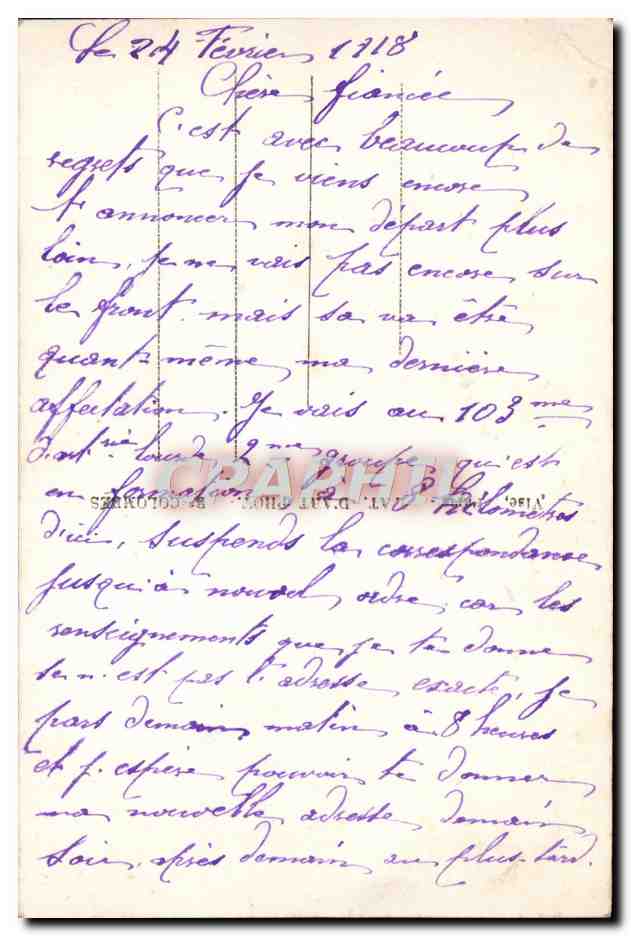 Le 24 Février 1918
Chère fiancée
C'est avec beaucoup de
regrets que je viens encore
t'annoncer mon départ plus
loin, je ne vais pas encore sur
le front. mais sa va être
quant-même ma dernière
affectation. Je vais au 103me
d'art rie lourde 9me groupe, qu'est
CPARHIL
en formation à 8 kilomètres
D'ART PHOT. Bs COLOMBES
d'ici, suspends la correspondance
jusqu'à nouvel ordre, car les
renseignements que je te donne
se n'est pas l'adresse exacte, je
part demain matin à 8 heures
et j'espère pouvoir te donner
ma nouvelle adresse demain
soir, après demain au plus-tard.